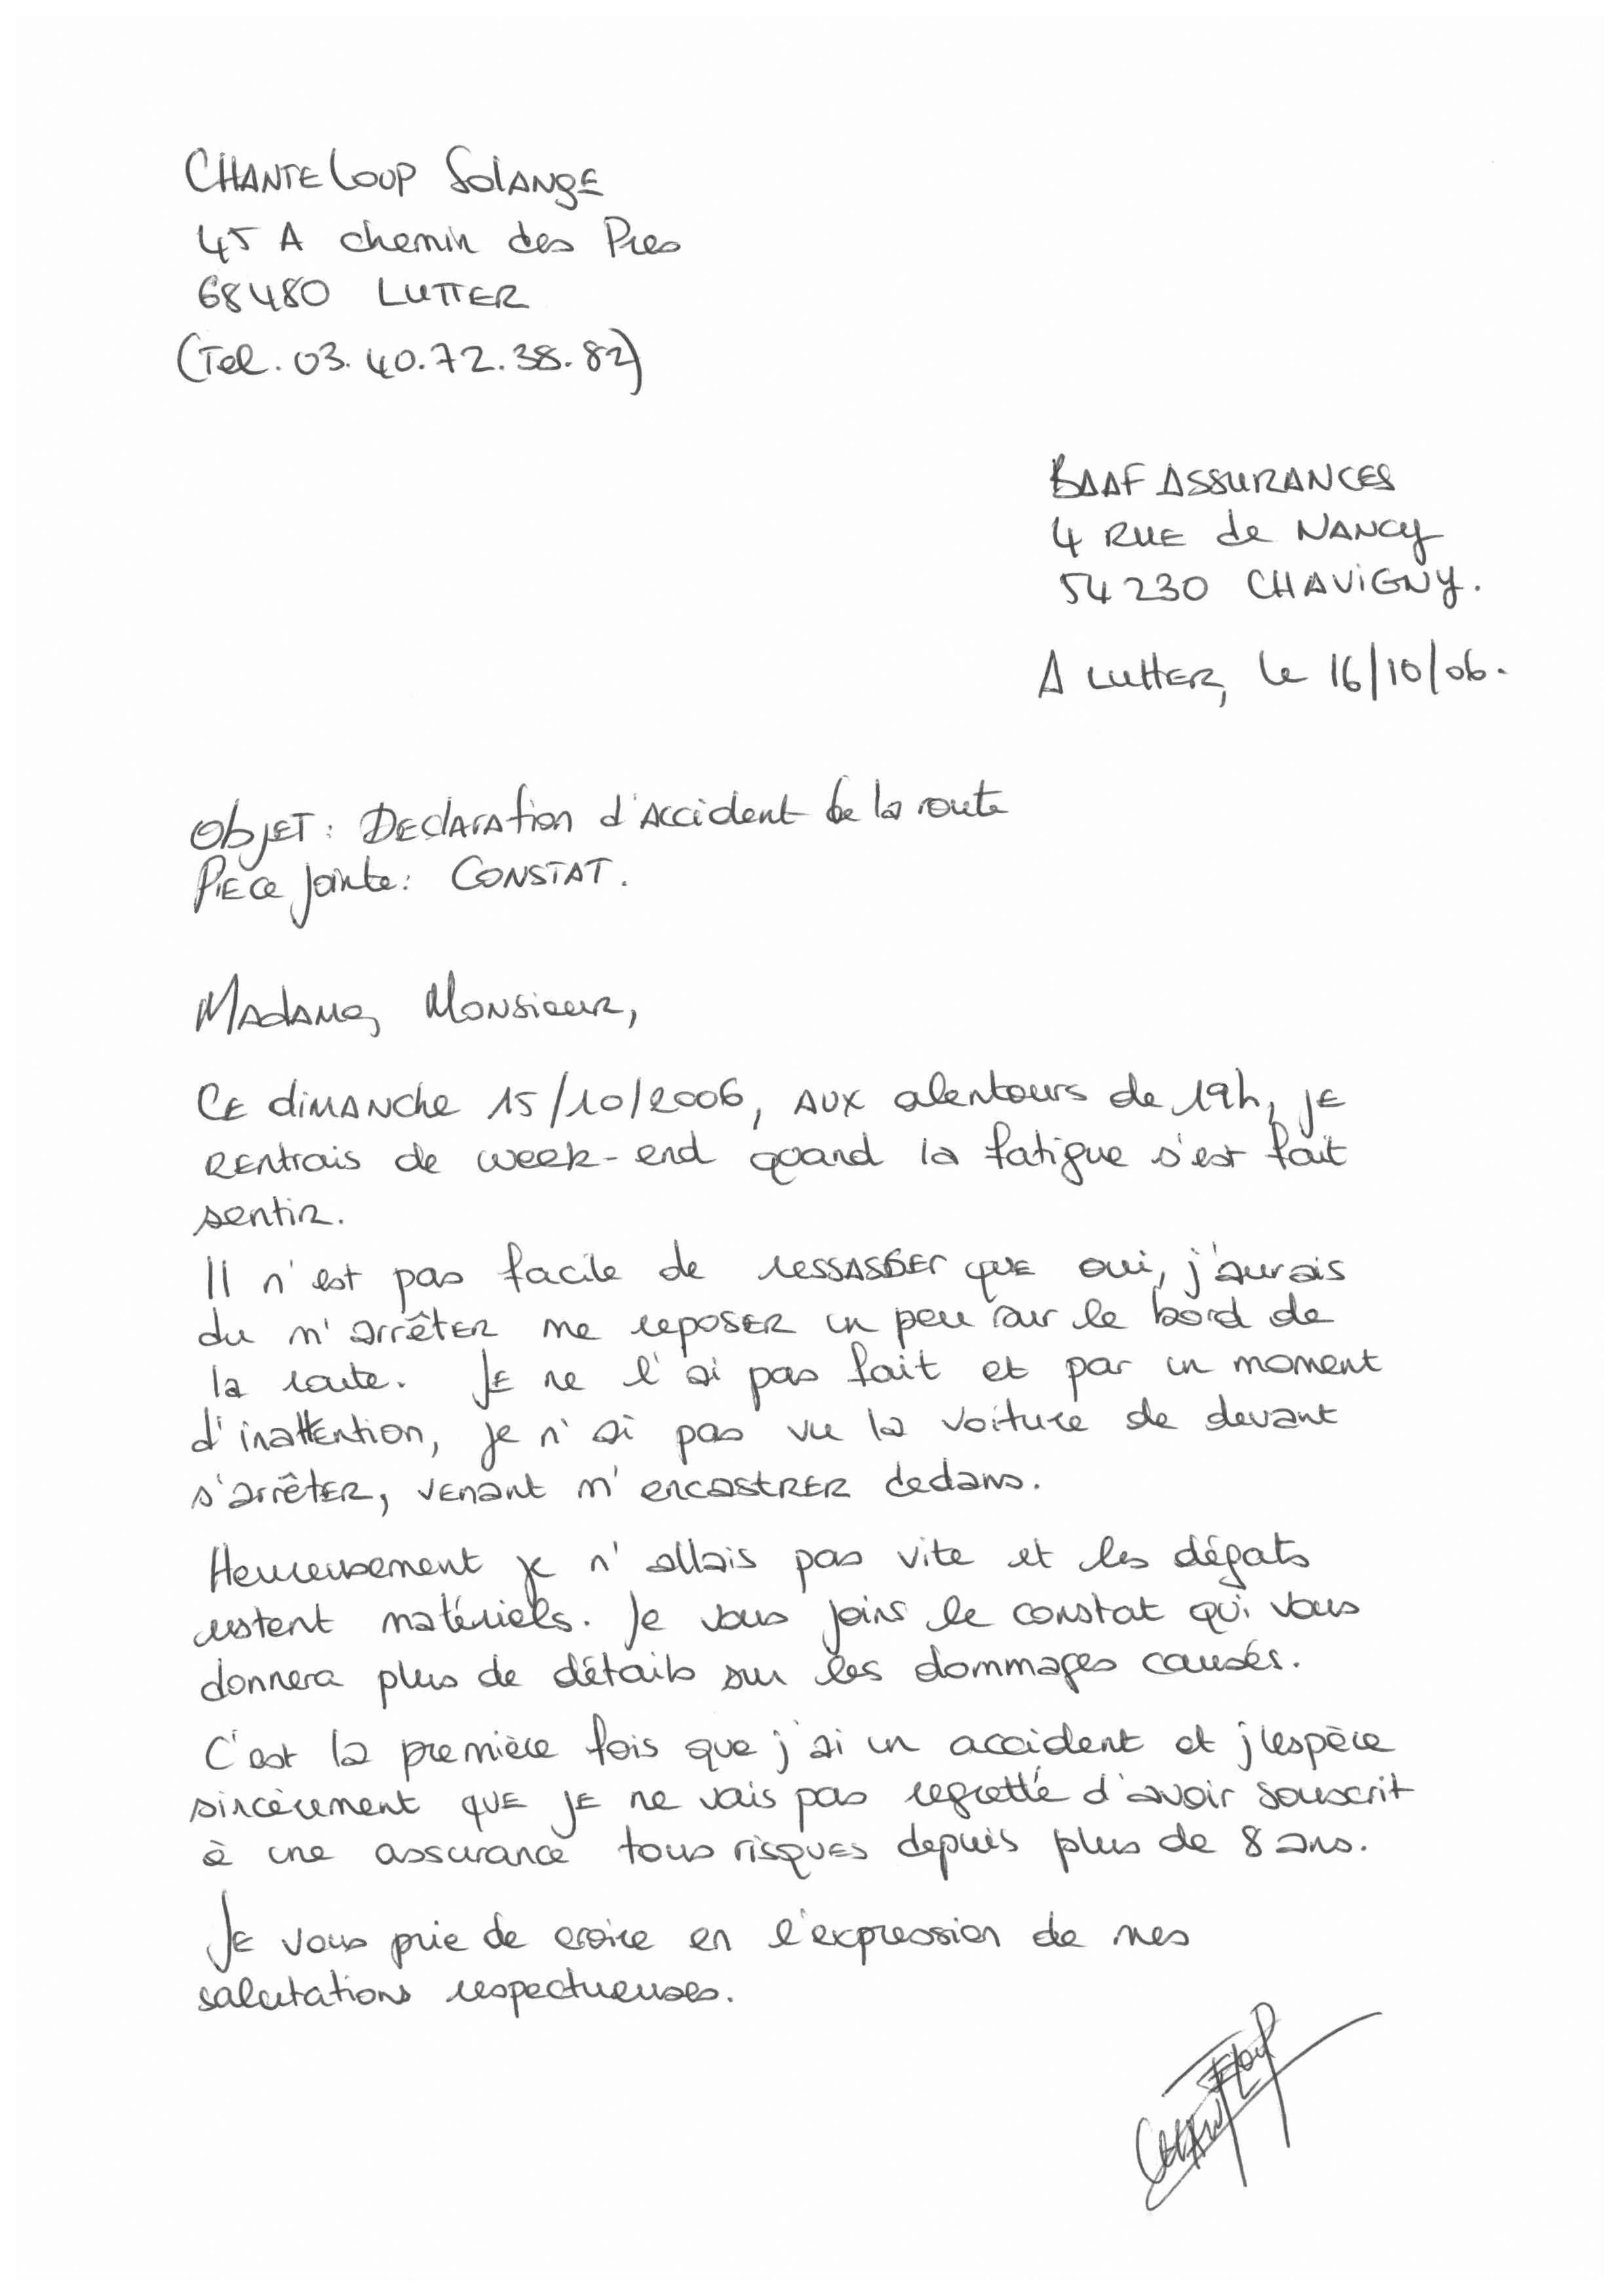 CHANTELOUP SOLANGE
45 A chemin des Pres
68480 LUTTER
(Tel. 03.40.72.38.82)
BAAF ASSURANCES
4 RUE de NANCY
54230 CHAVIGNY.
A LUTTER, le 16/10/06.
Objet : Declaration d'Accident de la route
Piece jointe : CONSTAT.
Madame, Monsieur,
Ce dimanche 15/10/2006, aux alentours de 19h, je
rentrais de week-end quand la fatigue s'est fait
sentir.
Il n'est pas facile de ressasser que oui, j'aurais
du m'arrêter me reposer un peu sur le bord de
la route. Je ne l'ai pas fait et par un moment
d'inattention, je n'ai pas vu la voiture de devant
s'arrêter, venant m'encastrer dedans.
Heureusement je n'allais pas vite et les dégats
restent matériels. Je vous joins le constat qui vous
donnera plus de détails sur les dommages causés.
C'est la première fois que j'ai un accident et j'espère
sincèrement que je ne vais pas regretté d'avoir souscrit
à une assurance tous risques depuis plus de 8 ans.
Je vous prie de croire en l'expression de mes
salutations respectueuses.